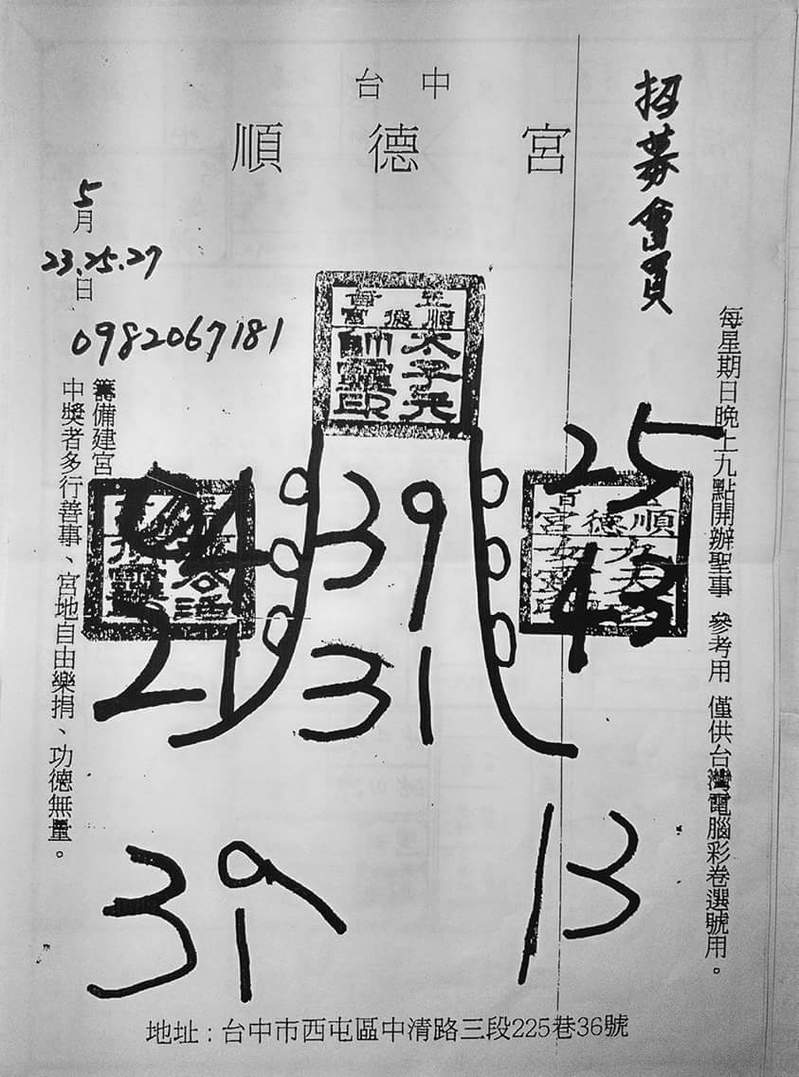 台中
順德宮
招募會員
每星期日晚上九點開辦聖事 參考用 僅供台灣電腦彩卷選號用。
5月
23.25.27日
0982067181
籌備建宮
中獎者多行善事、宮地自由樂捐、功德無量。
順德宮
太子元
帥靈印
04
21
39
31
25
43
順德宮
39
13
地址：台中市西屯區中清路三段225巷36號